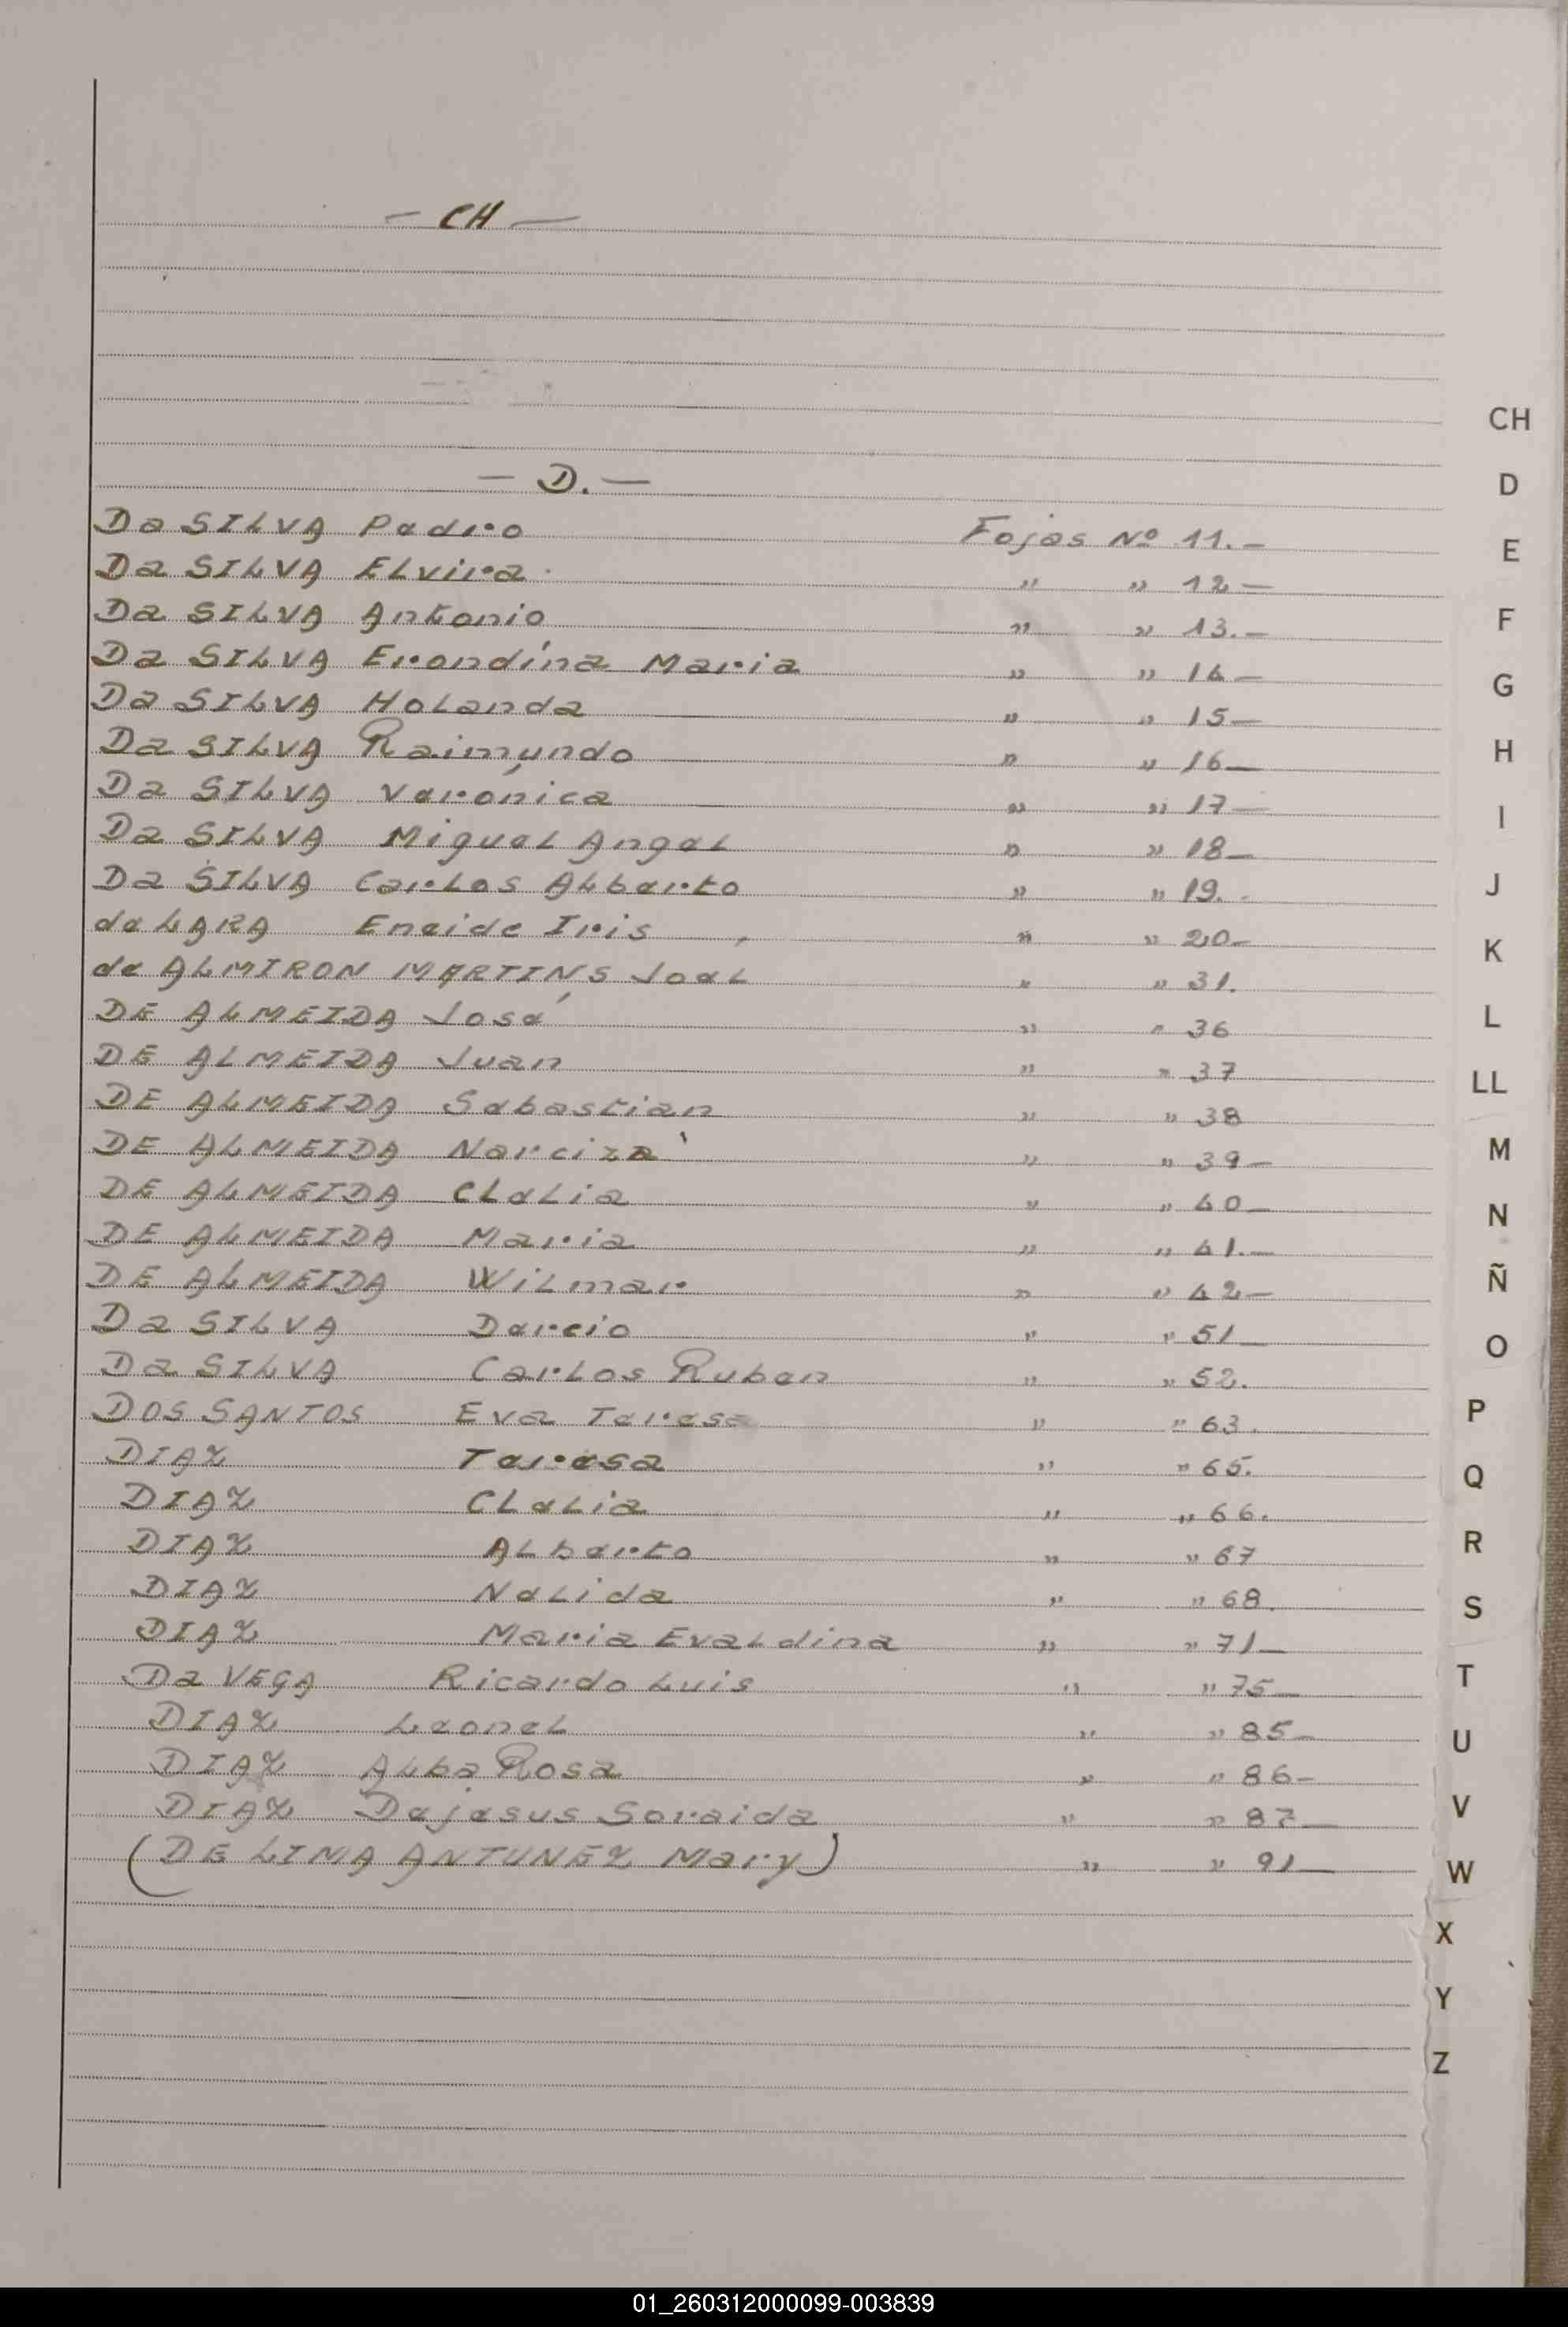 — CH —
— D. —
Da SILVA Pedro Fojas Nº 11.—
Da SILVA Elvira " " 12—
Da SILVA Antonio " " 13.—
Da SILVA Erondína Maria " " 14—
Da SILVA Holanda " " 15—
Da SILVA Raimundo " " 16—
Da SILVA Verónica " " 17—
Da SILVA Miguel Angel " " 18—
Da SILVA Carlos Alberto " " 19.-
de LARA Eneide Iris " " 20-
de ALMIRON MARTINS Joel " " 31.
DE ALMEIDA José " " 36
DE ALMEIDA Juan " " 37
DE ALMEIDA Sebastian " " 38
DE ALMEIDA Narciza " " 39—
DE ALMEIDA Clelia " " 40—
DE ALMEIDA Maria " " 41.—
DE ALMEIDA Wilmar " " 42—
Da SILVA Darcio " " 51—
Da SILVA Carlos Ruben " " 52.
DOS SANTOS Eva Teresa " " 63.
DIAZ Teresa " " 65.
DIAZ Clelia " " 66.
DIAZ Alberto " " 67
DIAZ Nelida " " 68.
DIAZ Maria Evaldina " " 71—
Da VEGA Ricardo Luis " " 75—
DIAZ Leonel " " 85—
DIAZ Alba Rosa " " 86-
DIAZ Dejesus Soraida " " 87—
(DE LIMA ANTUNEZ Mary) " " 91—
CH
D
E
F
G
H
I
J
K
L
LL
M
N
Ñ
O
P
Q
R
S
T
U
V
W
X
Y
Z
01_260312000099-003839